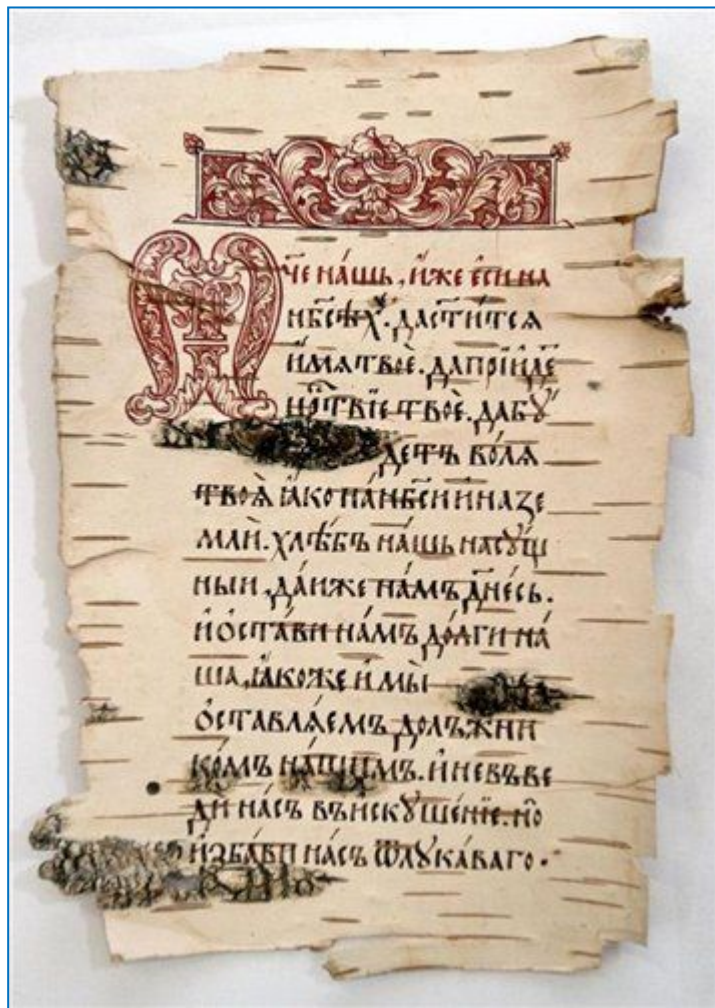 Ѿч҃е на́шь, и́же є҆сѝ на
нб҃сѣ́хъ. да ст҃и́тся
и҆́мя твоѐ. да прїи́де
црⷭ҇твїе твоѐ. да бу́
детъ во́ля
твоя̀ ꙗ҆́ко на нб҃си и на зе
млѝ. хлѣ́бъ на́шь насу́щ
ныи, да́иже на́мъ дне́сь.
и҆ ѻ҆ста́ви на́мъ до́лги на́
ша, ꙗ҆́коже и҆ мы̀
ѻ҆ставля́емъ долъжни
ко́мъ на́шимъ. и҆ не въве
ди на́съ въ искуше́нїе. но
избави на́съ ѿ лука́ваго.